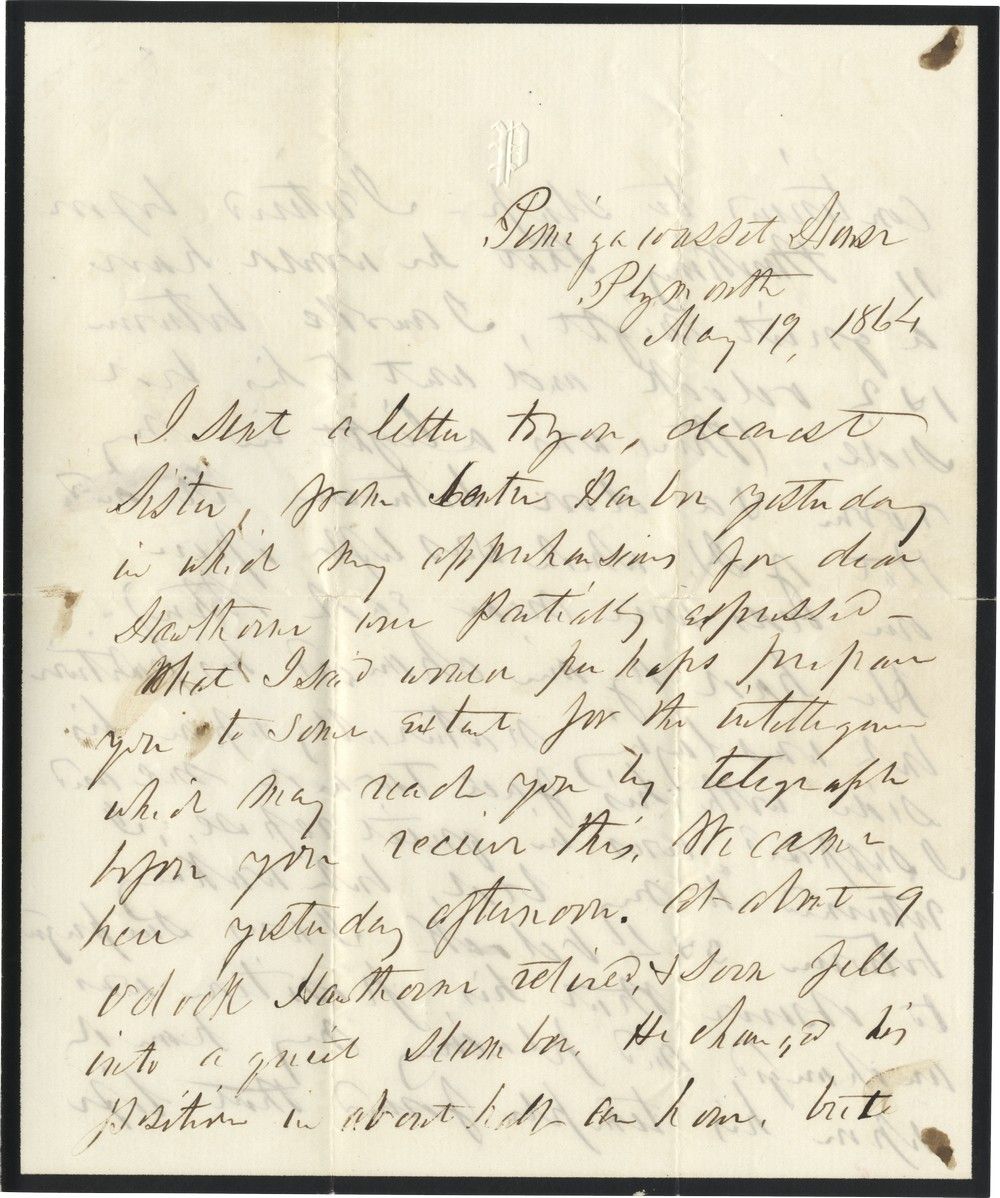 P
Pemigawasset House
Plymouth
May 19, 1864
I sent a letter to you, dearest
Sister, from Center Harbor yesterday
in which my apprehensions for dear
Hawthorne were partially expressed –
What I said would perhaps prepare
you to some extent for the intelligence
which may reach you by telegraph
before you recieve this. We came
here yesterday afternoon. At about 9
oclock Hawthorne retired, & soon fell
into a quiet slumber. He changed his
position in about half an hour, but